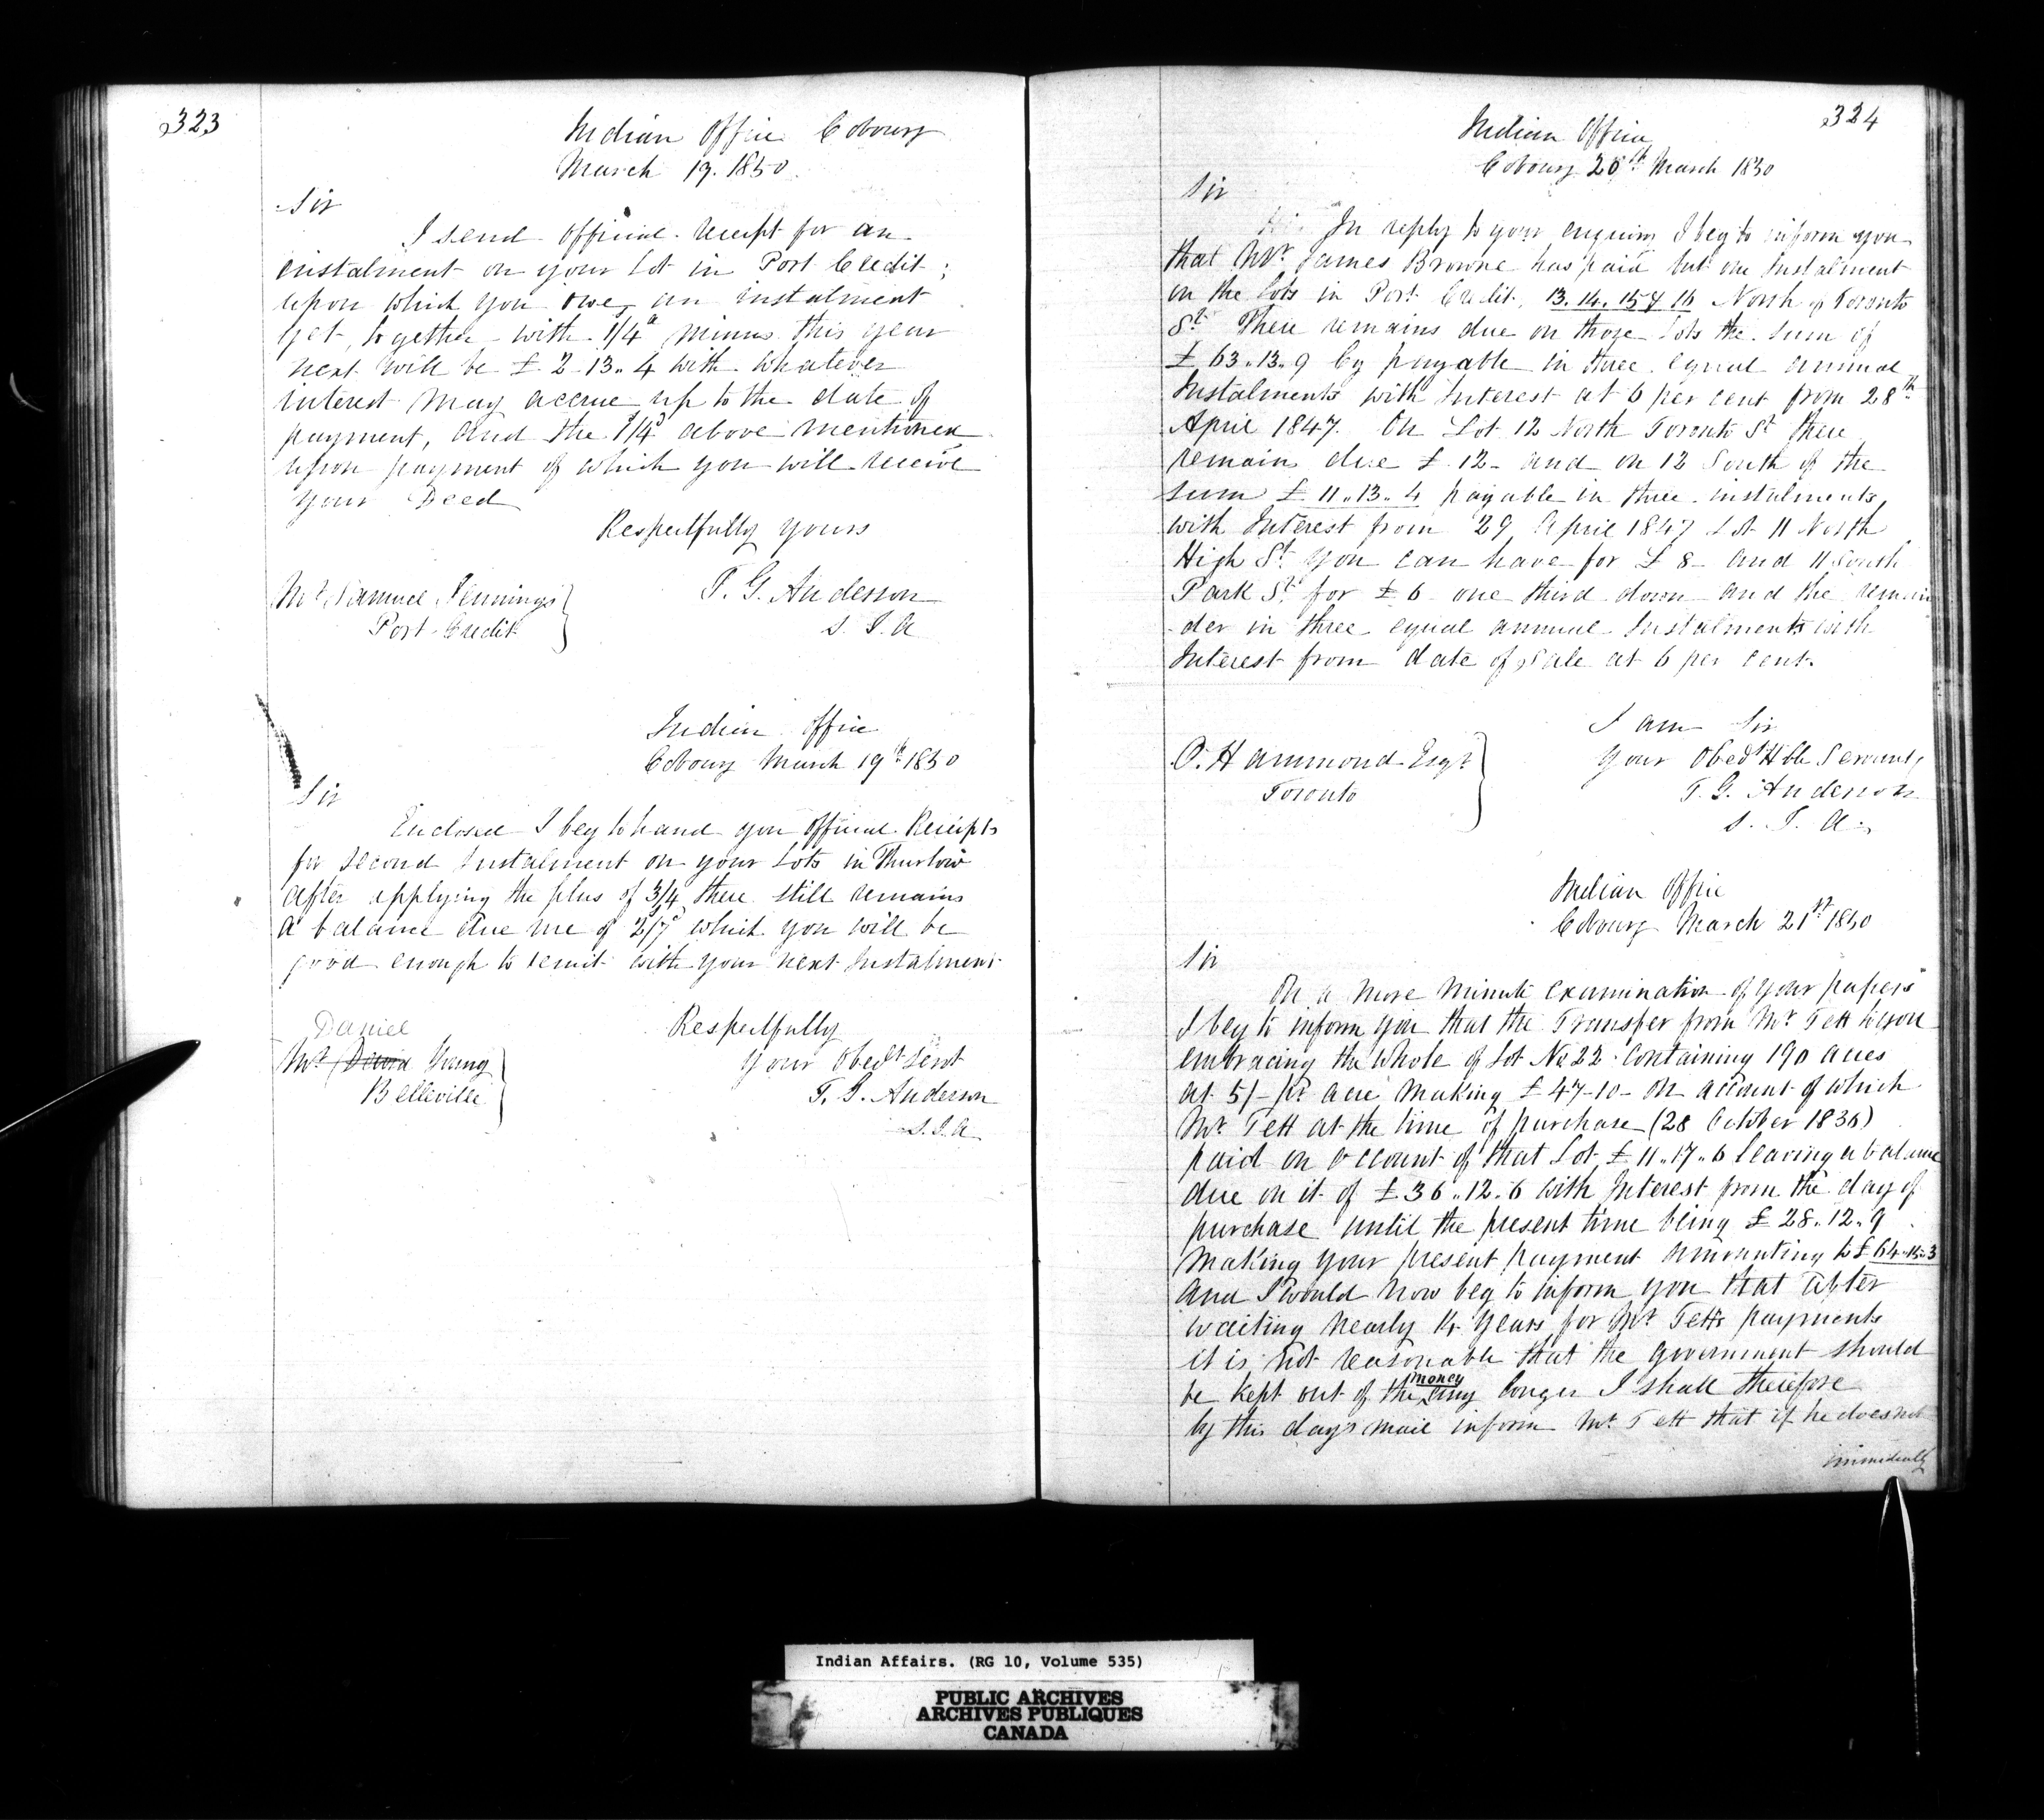 323
Indian Office Cobourg
March 19. 1850
Sir
I send official receipt for an
instalment on your Lot in Port Credit;
upon which you owe an instalment
yet, together with 1/4d minus this year
next will be £ 2-13.. 4 with whatever
interest may accrue up to the date of
payment, and the 1/4d above mentioned
upon payment of which you will receive
your Deed
Respectfully yours
T. G. Anderson
S. I. A
Mr Samuel Jennings
Port Credit
Indian Office
Cobourg March 19th 1850
Sir
Enclosed I beg to hand you official Receipts
for second Instalment on your Lots in Thurlow
After applying the plus of 3/4 there still remains
a balance due me of 2/7d which you will be
good enough to remit with your next Instalment
Respectfully
Your Obedt Servt
T. G. Anderson
S. I. A
Daniel
Mr David Young
Belleville
324
Indian Office
Cobourg 20th March 1850
Sir
In reply to your enquiry I beg to inform you
that Mr James Browne has paid but one Instalment
on the Lots in Port Credit, 13. 14. 15 & 16 North of Toronto
St. There remains due on those Lots the sum of
£ 63..13..9 Cy payable in three equal annual
Instalments with Interest at 6 per cent from 28th
April 1847. On Lot 12 North Toronto St there
remains due £ 12- and on 12 South of the
sum £ 11..13..4 payable in three instalments,
with Interest from 29 April 1847 Lot 11 North
High St you can have for £ 8- and 11 South
Park St for £ 6- one third down and the remain
-der in three equal annual Instalments with
Interest from date of sale at 6 per cent.
I am Sir
Your Obedt Hble Servant,
T. G. Anderson
S. I. A.
O. Hammond Esqr
Toronto
Indian Office
Cobourg March 21st 1850
Sir
On a more minute examination of your papers
I beg to inform you that the Transfer from Mr Tett to you
embracing the whole of Lot No 22 containing 190 acres
at 5/- pr acre making £ 47-10- on account of which
Mr Tett at the time of purchase (28 October 1836)
paid on account of that Lot £ 11..17..6 leaving a balance
due on it of £ 36..12..6 with Interest from the day of
purchase until the present time being £ 28..12..9
Making your present payment amounting to £ 64..15..3
And I would now beg to inform you that after
waiting nearly 14 years for Mr Tetts payments
it is not reasonable that the government should
be kept out of the money any longer I shall therefore
by this days mail inform Mr Tett that if he does not
immediately
Indian Affairs. (RG 10, Volume 535)
PUBLIC ARCHIVES
ARCHIVES PUBLIQUES
CANADA